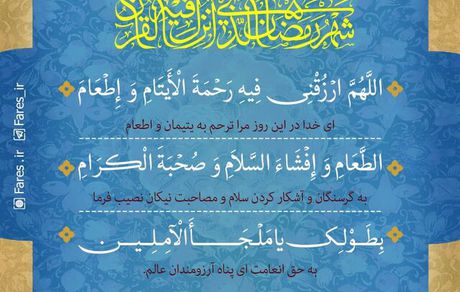 شهر رمضان الذی أنزل فیه القرآن
اللَّهُمَّ ارْزُقْنِی فِیهِ رَحْمَةَ الْأَیْتَامِ وَ إِطْعَامَ
ای خدا در این روز مرا ترحم به یتیمان و اطعام
الطَّعَامِ وَ إِفْشَاءَ السَّلاَمِ وَ صُحْبَةَ الْكِرَامِ
به گرسنگان و آشکار کردن سلام و مصاحبت نیکان نصیب فرما
بِطَوْلِکَ یَا مَلْجَأَ الْآمِلِینَ
به حق انعامت ای پناه آرزومندان عالم.
Fares_ir
Fares.ir